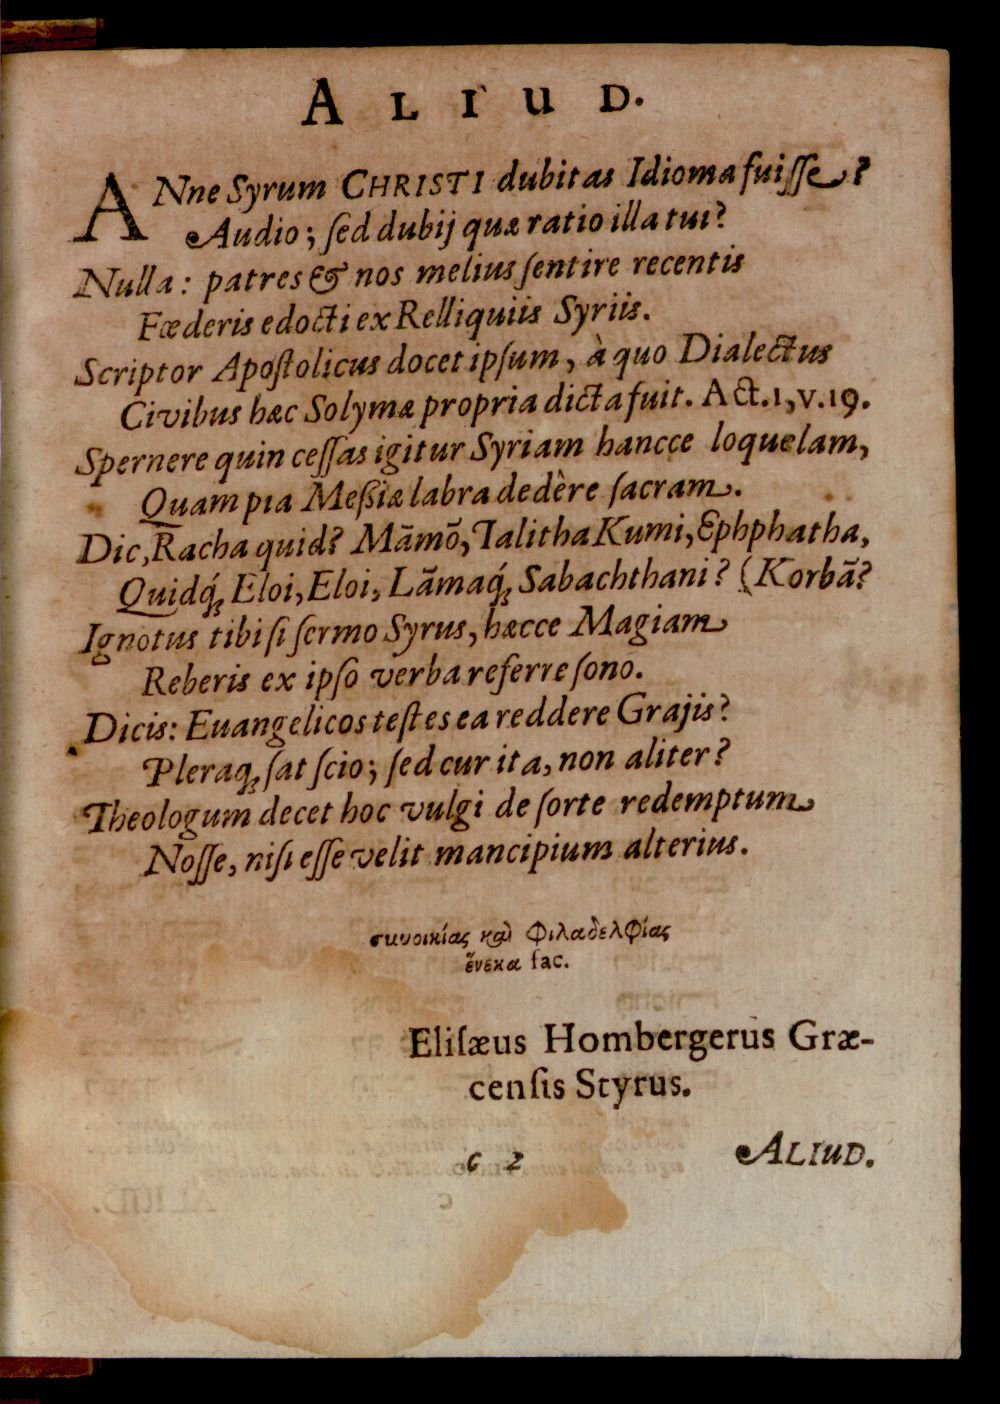 ALIUD.
ANne Syrum CHRISTI dubitas Idioma fuiſſe?
Audio; ſed dubij quæ ratio illa tui?
Nulla: patres & nos melius ſentire recentis
Fœderis edocti ex Relliquiis Syriis.
Scriptor Apoſtolicus docet ipſum, à quo Dialectus
Civibus hæc Solymæ propria dicta fuit. Act.1,v.19.
Spernere quin ceſſas igitur Syriam hancce loquelam,
Quam pia Meßiæ labra dedère ſacram.
Dic, Racha quid? Mãmõ, Talitha Kumi, Ephphatha,
Quidq́ꝫ Eloi, Eloi, Lãmaq́ꝫ Sabachthani? (Korbã?
Ignotus tibi ſi ſermo Syrus, hæcce Magiam
Reberis ex ipſo verba referre ſono.
Dicis: Euangelicos teſtes ea reddere Grajis?
Pleraqꝫ ſat ſcio; ſed cur ita, non aliter?
Theologum decet hoc vulgi de ſorte redemptum
Noſſe, niſi eſſe velit mancipium alterius.
συνοικίας καὶ Φιλαδελφίας
ἕνεκα fac.
Eliſæus Hombergerus Græ-
cenſis Styrus.
c 2 ALIUD.